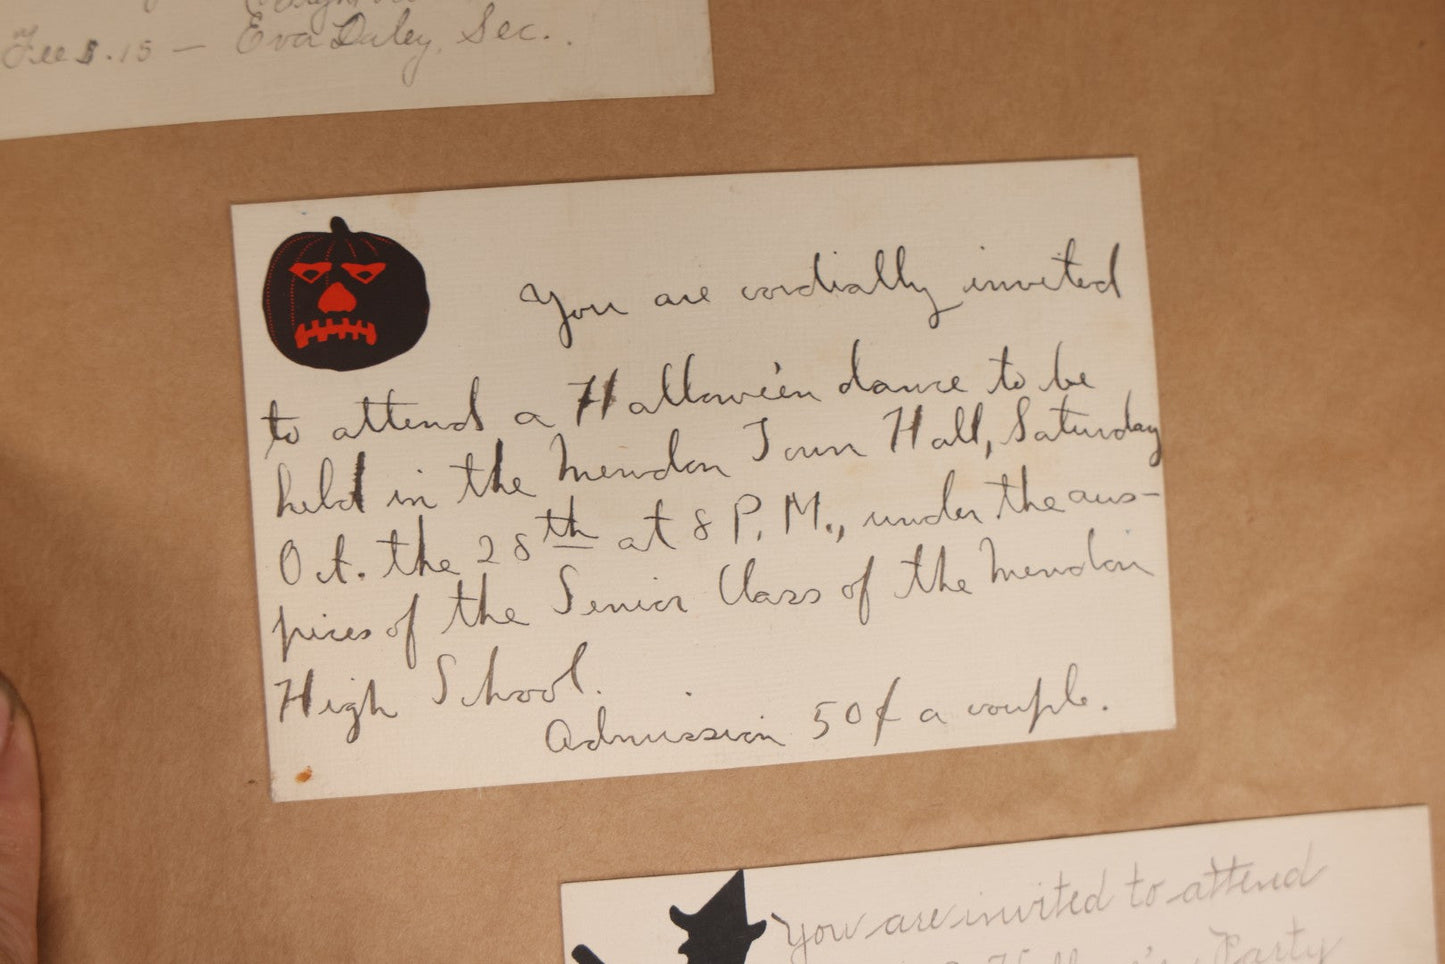 Fee $.15 — Eva Daley, Sec.
You are cordially invited
to attend a Hallowe'en dance to be
held in the Mendon Town Hall, Saturday
Oct. the 28th at 8 P.M., under the aus-
pices of the Senior Class of the Mendon
High School.
Admission 50¢ a couple.
You are invited to attend
Party